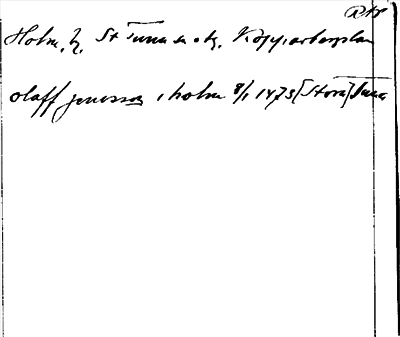 Holm, h. St Tuna sn o hg. Kopparbergs län
olaff jenisson i holm 8/1 1473 [Stora] Tuna